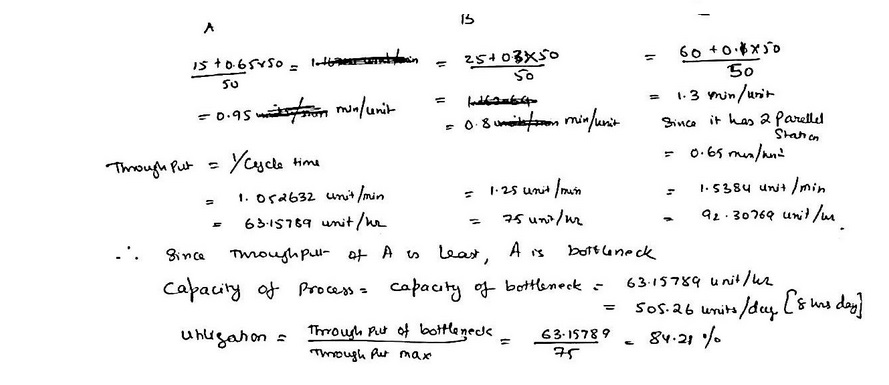 A B –
15+0.65×50 / 50 = = 25+0.3×50 / 50 = 60+0.1×50 / 50
= 0.95 min/unit = = 1.3 min/unit
= 0.8 min/unit Since it has 2 Parellel Station
= 0.65 min/unit
Throughput = 1/Cycle time
= 1.052632 unit/min = 1.25 unit/min = 1.5384 unit/min
= 63.15789 unit/hr = 75 unit/hr = 92.30769 unit/hr.
∴ Since Throughput of A is least, A is bottleneck
Capacity of Process = Capacity of bottleneck = 63.15789 unit/hr
= 505.26 units/day [8 hrs day]
Utilization = Through Put of bottleneck / Through Put max = 63.15789 / 75 = 84.21 %